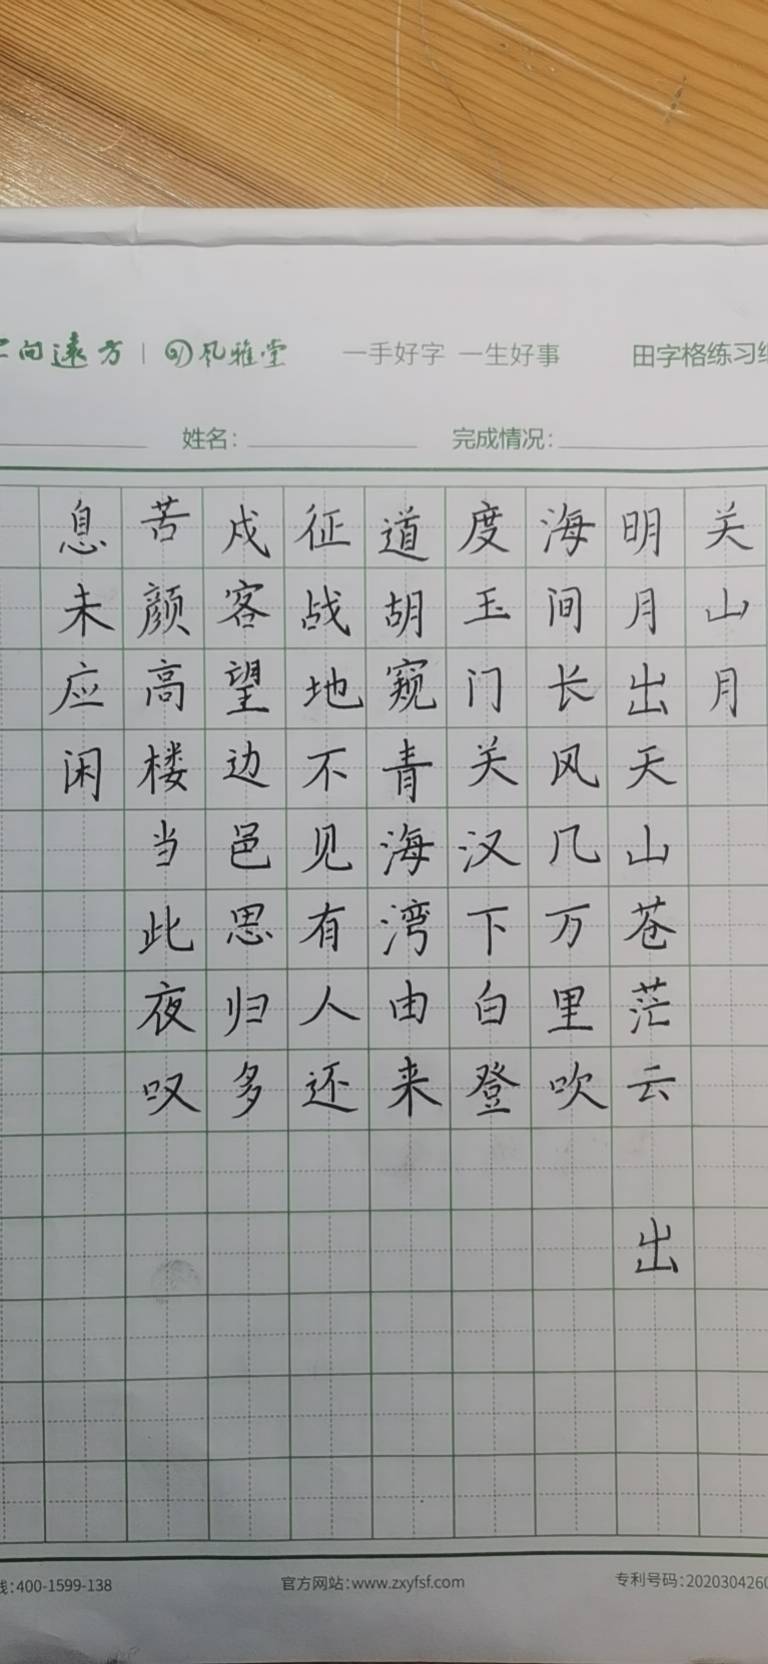 向遠方 | 风雅堂 一手好字 一生好事 田字格练习
姓名： 完成情况：
关山月
明月出天山苍茫云 出
海间长风几万里吹
度玉门关汉下白登
道胡窥青海湾由来
征战地不见有人还
戍客望边邑思归多
苦颜高楼当此夜叹
息未应闲
线:400-1599-138 官方网站:www.zxyfsf.com 专利号码:2020304260